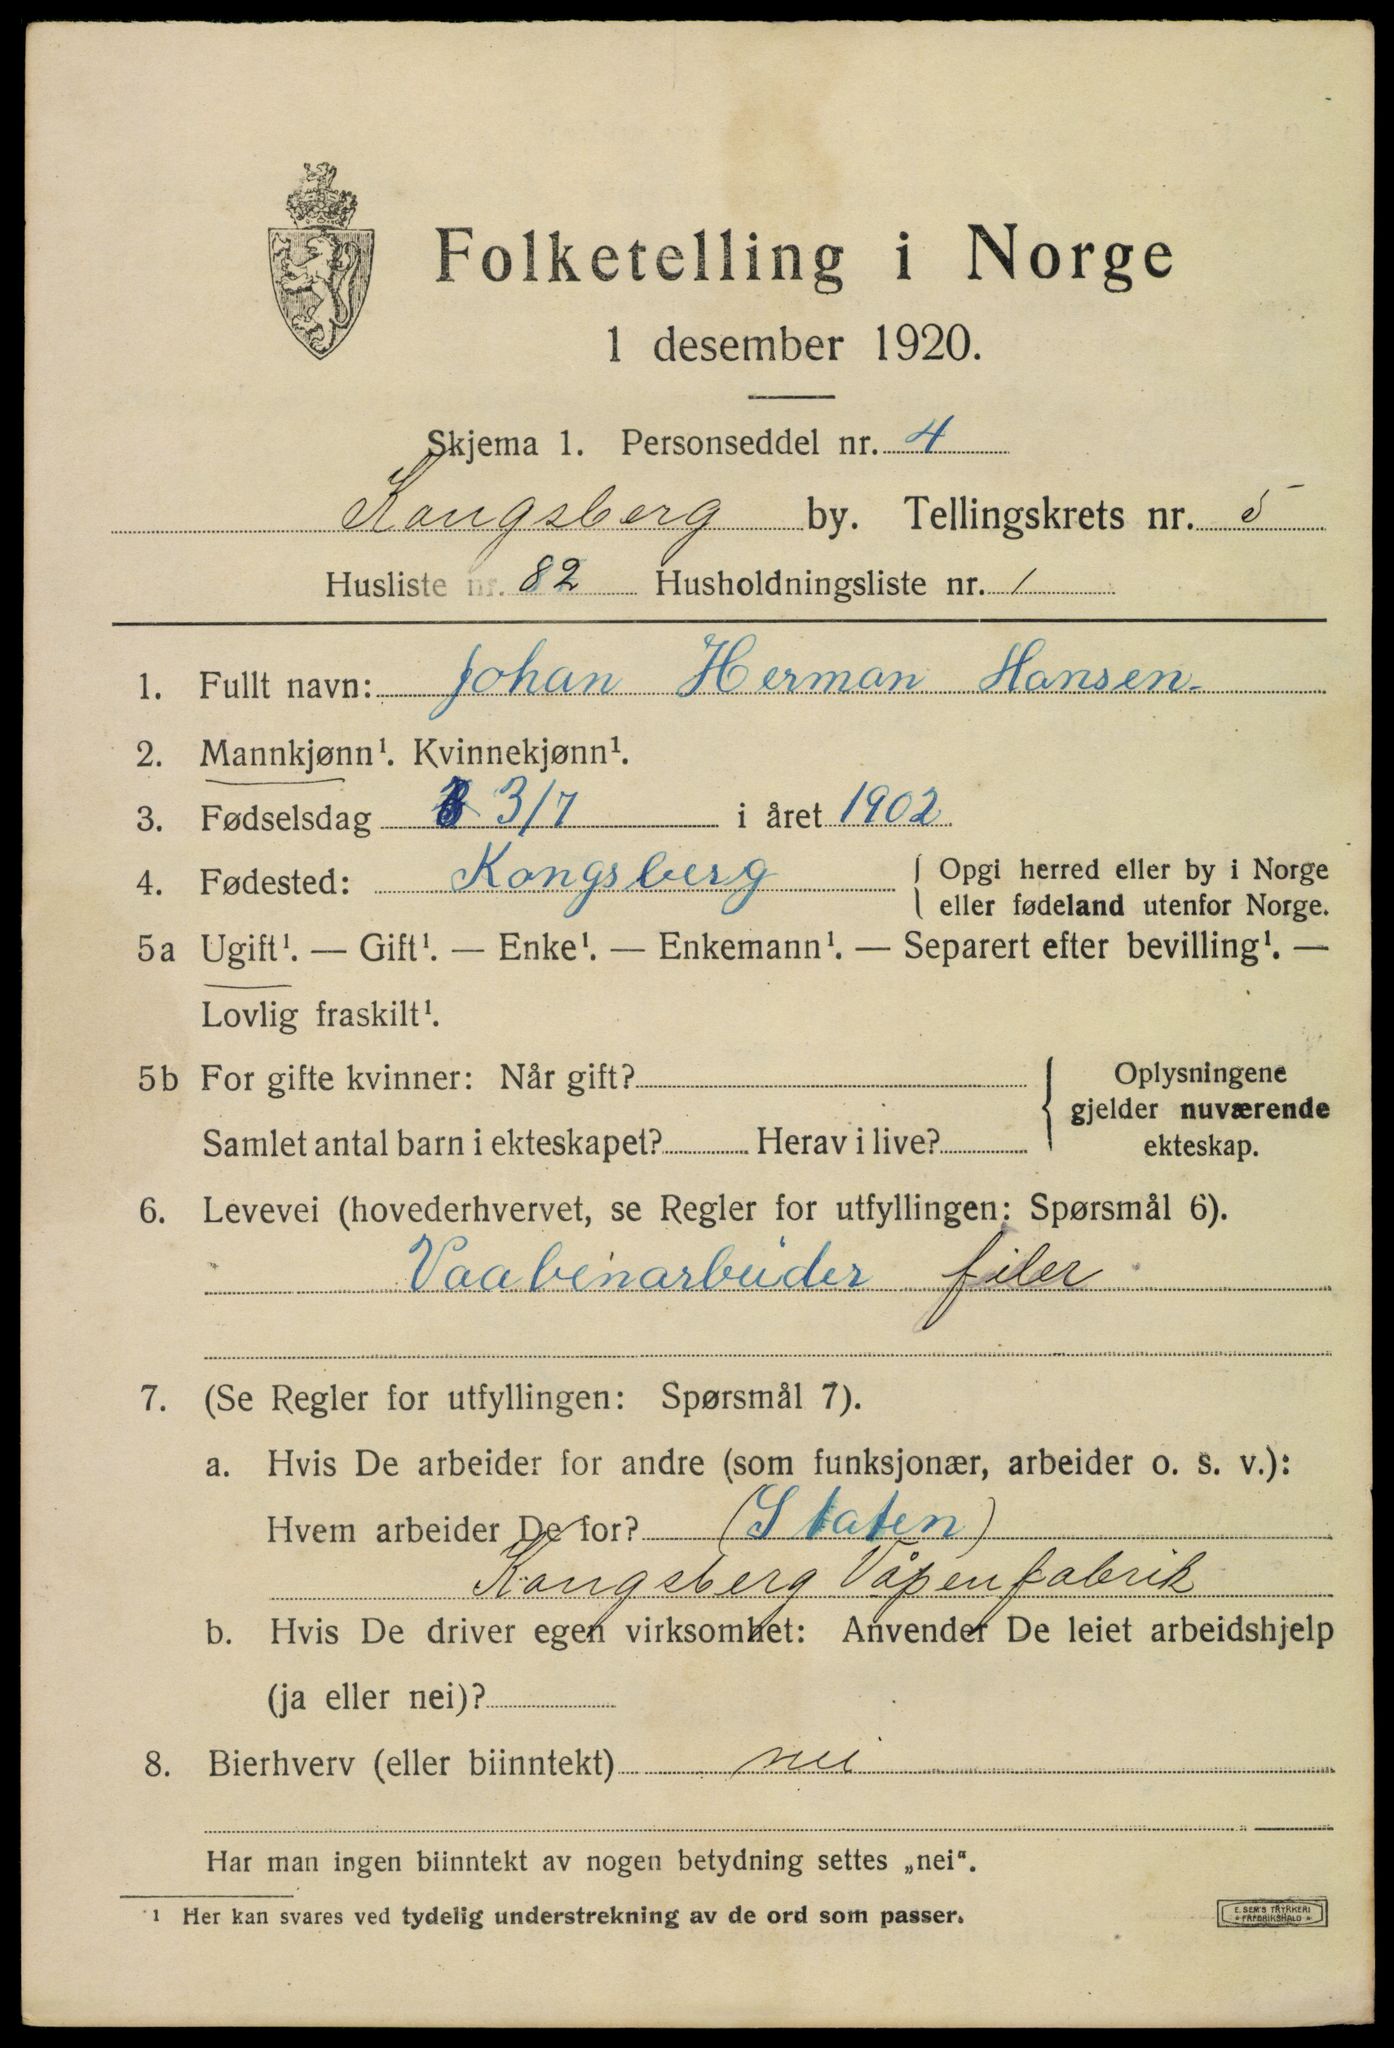 Folketelling i Norge
1 desember 1920.
Skjema 1. Personseddel nr. 4
Kongsberg by. Tellingskrets nr. 5
Husliste nr. 82 Husholdningsliste nr. 1
1. Fullt navn: Johan Herman Hansen
2. Mannkjønn¹. Kvinnekjønn¹.
3. Fødselsdag 3/7 i året 1902
4. Fødested: Kongsberg { Opgi herred eller by i Norge
eller fødeland utenfor Norge.
5a Ugift¹. — Gift¹. — Enke¹. — Enkemann¹. — Separert efter bevilling¹. —
Lovlig fraskilt¹.
5b For gifte kvinner: Når gift?
Samlet antal barn i ekteskapet? Herav i live?
{ Oplysningene
gjelder nuværende
ekteskap.
6. Levevei (hovederhvervet, se Regler for utfyllingen: Spørsmål 6).
Vaabenarbeider filer
7. (Se Regler for utfyllingen: Spørsmål 7).
a. Hvis De arbeider for andre (som funksjonær, arbeider o. s. v.):
Hvem arbeider De for? (Staten)
Kongsberg Våpenfabrik
b. Hvis De driver egen virksomhet: Anvender De leiet arbeidshjelp
(ja eller nei)?
8. Bierhverv (eller biinntekt) nei
Har man ingen biinntekt av nogen betydning settes „nei".
¹ Her kan svares ved tydelig understrekning av de ord som passer.
E. SEM'S TRYKKERI
FREDRIKSHALD